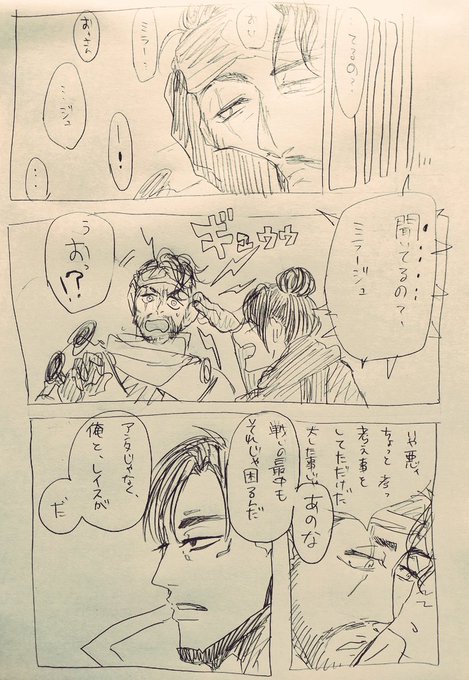 てるの?
おい
ミラー…
おっさん
ミラージュ
ー!
…
……聞いてるの?、
ミラージュ
ギュウウ
うおっ!?
いや悪い
ちょっと
考え事を
してただけだ
大した事じゃ
あのな
戦いの最中も
それじゃ困るんだ
アンタじゃなく
俺と、レイスが
だ